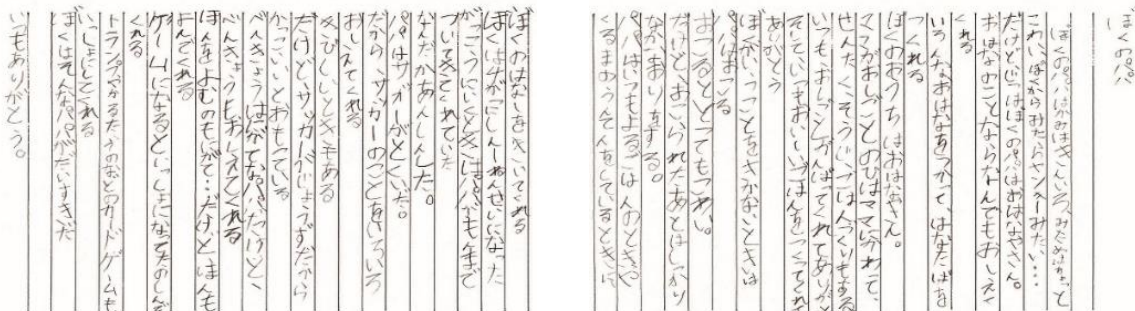 ぼくのパパ
ぼくのパパはかみはきんいろ、みためはちょっと
こわい。ぱっからみたらヤンキーみたい…
だけどじつはぼくのパパはおはなやさん。
おはなのことならなんでもおしえて
くれる
いろんなおはなをつかって、はなたばを
つくれる
ぼくのおうちはおはなやさん。
ママがおしごとのひはママにかわって、
せんたくそうじ、ごはんつくりもする
いつもおしごとがんばってくれてありがとう
そしていつもおいしいごはんをつくってくれて
ありがとう
ぼくがいうことをきかないときは
パパはおこる
おこるととってもこわい。
だけど、おこられたあとはしっかり
なかなおりをする。
パパはいつもよるごはんのときや
くるまのうんてんをしているときに
ぼくのはなしをきいてくれる
ぼくは1年がにしんしゃんせいになった
がっこうにいくときはパパがもんまで
ついてきてくれていた
なんだかあんしんした。
パパはサッカーがとくいだ。
だから、サッカーのことをいろいろ
おしえてくれる
きびしいときもある
だけどサッカーがじょうずだから
かっこいいとおもっている
べんきょうはがてなパパだけど、
べんきょうもおしえてくれる
ほんをよむのもにがて…だけどほんも
よんでくれる
ゲームになるといっしょになってたのしんで
くれる
トランプやかるたなどのカードゲームも
いっしょにしてくれる
ぼくはそんなパパがだいすきだ
いつもありがとう。